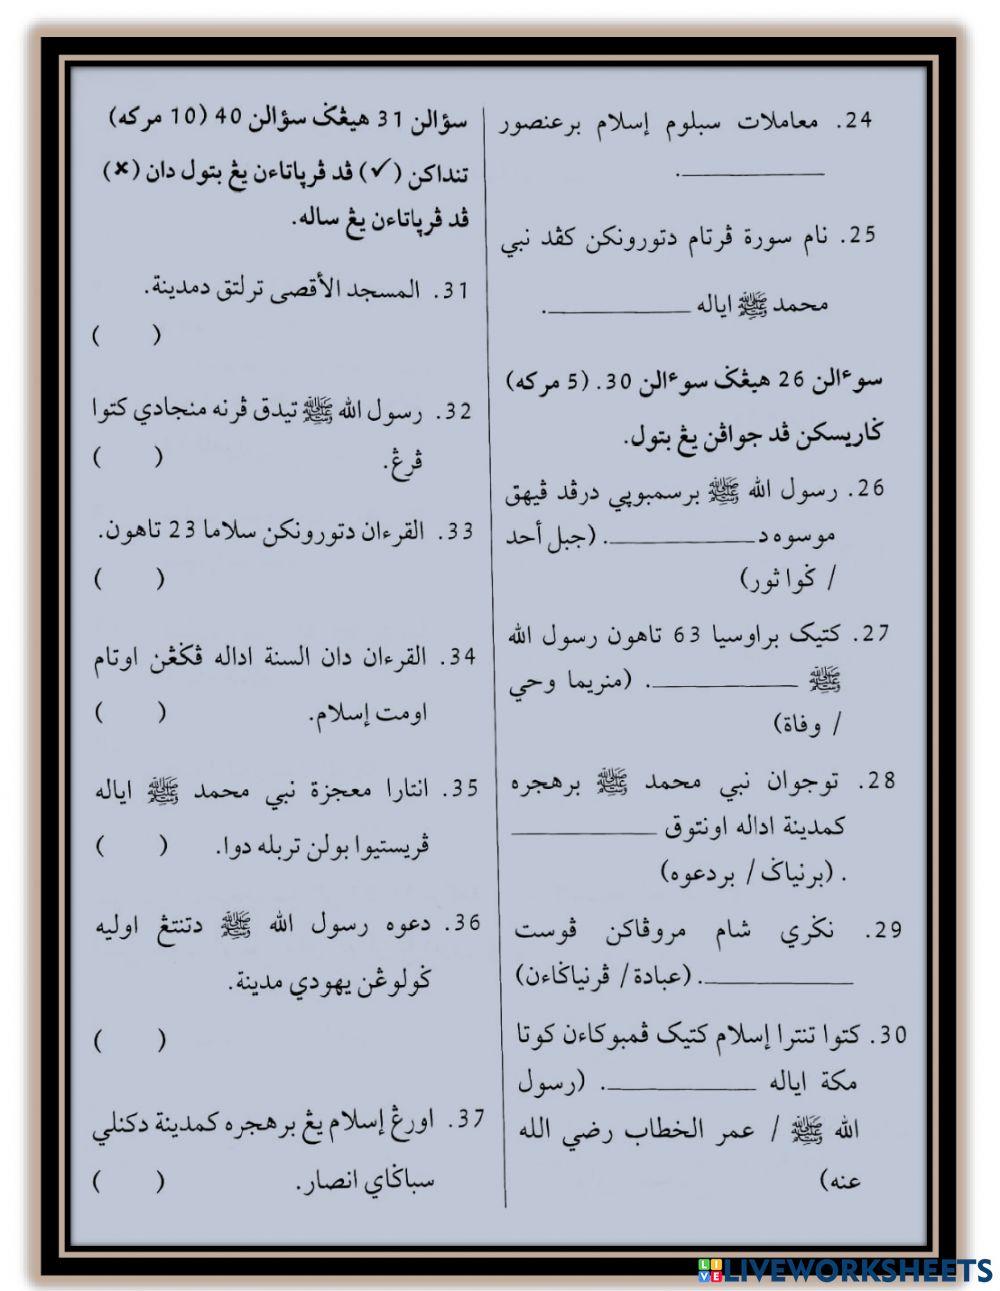 24. معاملات سبلوم إسلام برعنصور
____________.
25. نام سورة ڤرتام دتورونكن كڤد نبي
محمد ﷺ اياله ____________.
سوءالن 26 هيڠݢ سوءالن 30. (5 مركه)
ݢاريسكن ڤد جواڤن يڠ بتول.
26. رسول الله ﷺ برسمبوڽي درڤد ڤيهق
موسوه د____________. (جبل أحد
/ ݢوا ثور)
27. كتيک براوسيا 63 تاهون رسول الله
ﷺ ____________. (منريما وحي
/ وفاة)
28. توجوان نبي محمد ﷺ برهجره
كمدينة اداله اونتوق ____________
. (برنياݢ / بردعوه)
29. نݢري شام مروڤاكن ڤوست
____________. (عبادة / ڤرنياݢاءن)
30. كتوا تنترا إسلام كتيک ڤمبوكاءن كوتا
مكة اياله ____________. (رسول
الله ﷺ / عمر الخطاب رضي الله
عنه)
سؤالن 31 هيڠݢ سؤالن 40 (10 مركه)
تنداكن (✓) ڤد ڤرڽاتاءن يڠ بتول دان (✗)
ڤد ڤرڽاتاءن يڠ ساله.
31. المسجد الأقصى ترلتق دمدينة.
( )
32. رسول الله ﷺ تيدق ڤرنه منجادي كتوا
ڤرڠ. ( )
33. القرءان دتورونكن سلاما 23 تاهون.
( )
34. القرءان دان السنة اداله ڤݢڠن اوتام
اومت إسلام. ( )
35. انتارا معجزة نبي محمد ﷺ اياله
ڤريستيوا بولن تربله دوا. ( )
36. دعوه رسول الله ﷺ دتنتڠ اوليه
ݢولوڠن يهودي مدينة.
( )
37. اورڠ إسلام يڠ برهجره كمدينة دكنلي
سباݢاي انصار. ( )
LIVEWORKSHEETS